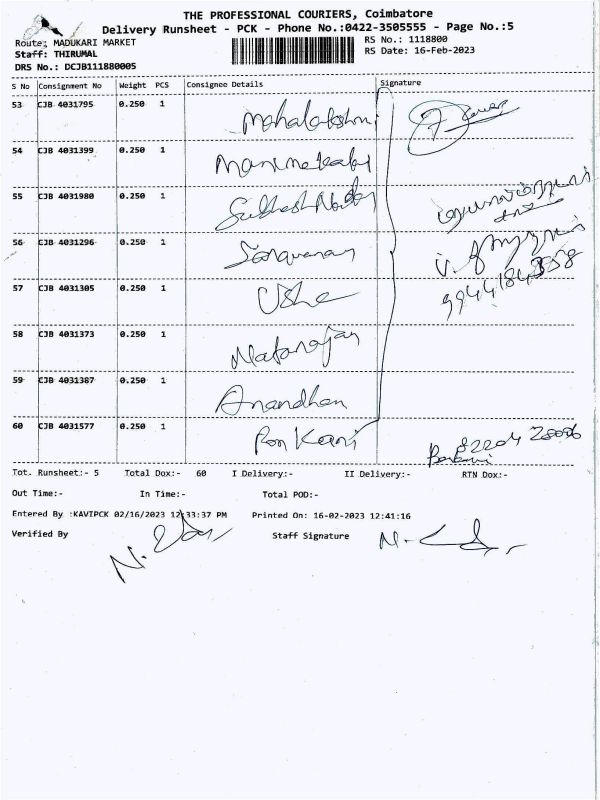 THE PROFESSIONAL COURIERS, Coimbatore
Delivery Runsheet - PCK - Phone No.:0422-3505555 - Page No.:5
Route: MADUKARI MARKET
RS No.: 1118800
Staff: THIRUMAL
RS Date: 16-Feb-2023
DRS No.: DCJB111880005
S No Consignment No Weight PCS Consignee Details Signature
53 CJB 4031795 0.250 1 Mahalakshmi
54 CJB 4031399 0.250 1 Manimekalai
55 CJB 4031980 0.250 1
56 CJB 4031296 0.250 1 Saravanan
9944184358
57 CJB 4031305 0.250 1 Usha
58 CJB 4031373 0.250 1 Natarajan
59 CJB 4031387 0.250 1 Anandhan
60 CJB 4031577 0.250 1 Pon Kani
Tot. Runsheet:- 5 Total Dox:- 60 I Delivery:- II Delivery:- RTN Dox:-
Out Time:- In Time:- Total POD:-
Entered By :KAVIPCK 02/16/2023 12:33:37 PM Printed On: 16-02-2023 12:41:16
Verified By Staff Signature